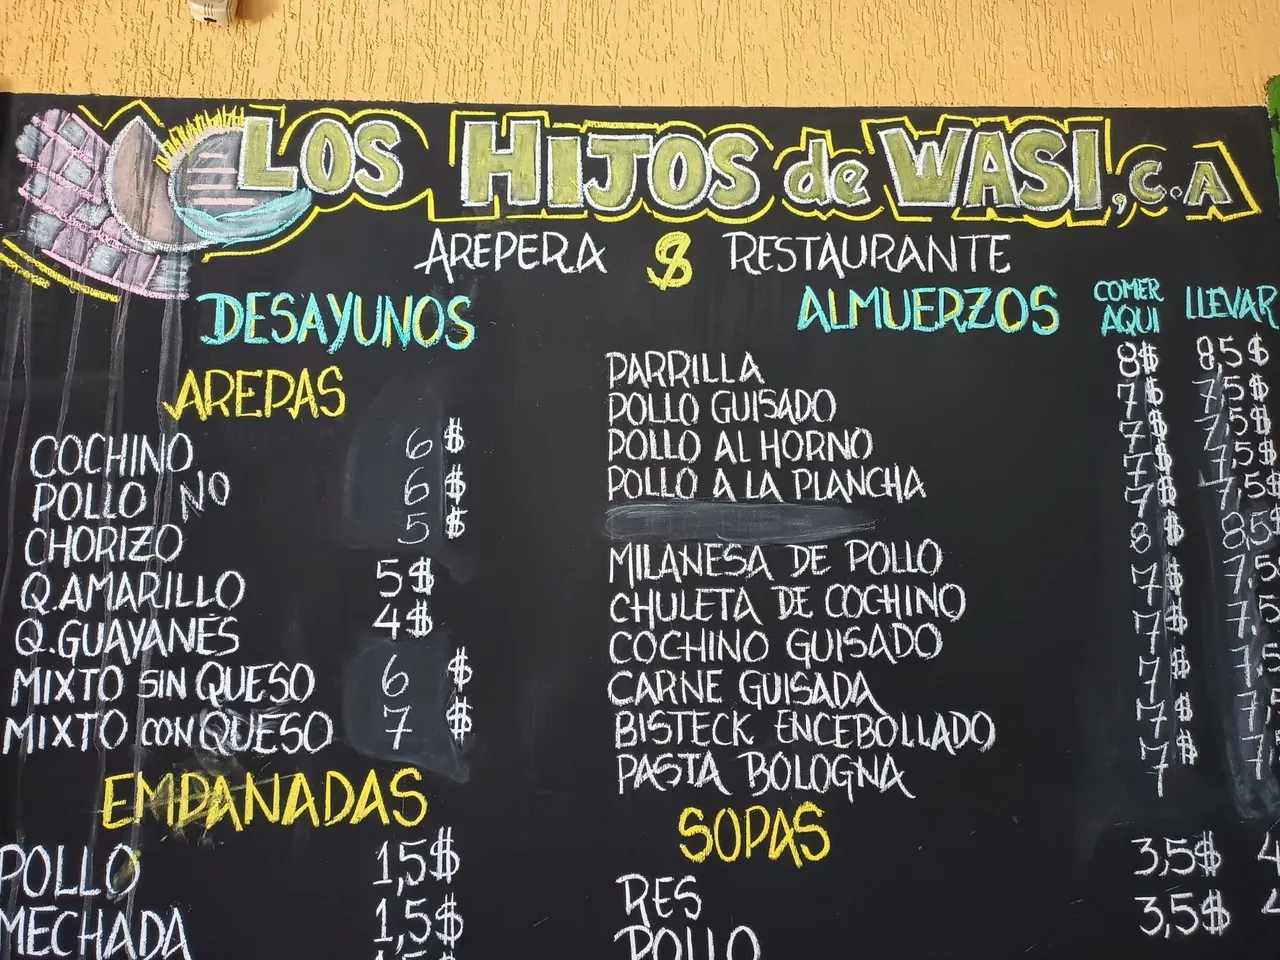 LOS HIJOS de WASI, C.A
AREPERA $ RESTAURANTE
DESAYUNOS
AREPAS
COCHINO 6 $
POLLO NO 6 $
CHORIZO 5 $
Q.AMARILLO 5$
Q.GUAYANES 4$
MIXTO SIN QUESO 6 $
MIXTO CON QUESO 7 $
EMPANADAS
POLLO 1,5$
MECHADA 1,5$
ALMUERZOS COMER AQUI LLEVAR
PARRILLA 8$ 8,5$
POLLO GUISADO 7$ 7,5$
POLLO AL HORNO 7$ 7,5$
POLLO A LA PLANCHA 7$ 7,5$
7$ 7,5$
MILANESA DE POLLO 8$ 8,5$
CHULETA DE COCHINO 7$ 7,5
COCHINO GUISADO 7$ 7,5
CARNE GUISADA 7$ 7,5
BISTECK ENCEBOLLADO 7$ 7,
PASTA BOLOGNA 7$ 7,
7
SOPAS
RES 3,5$ 4
POLLO 3,5$ 4